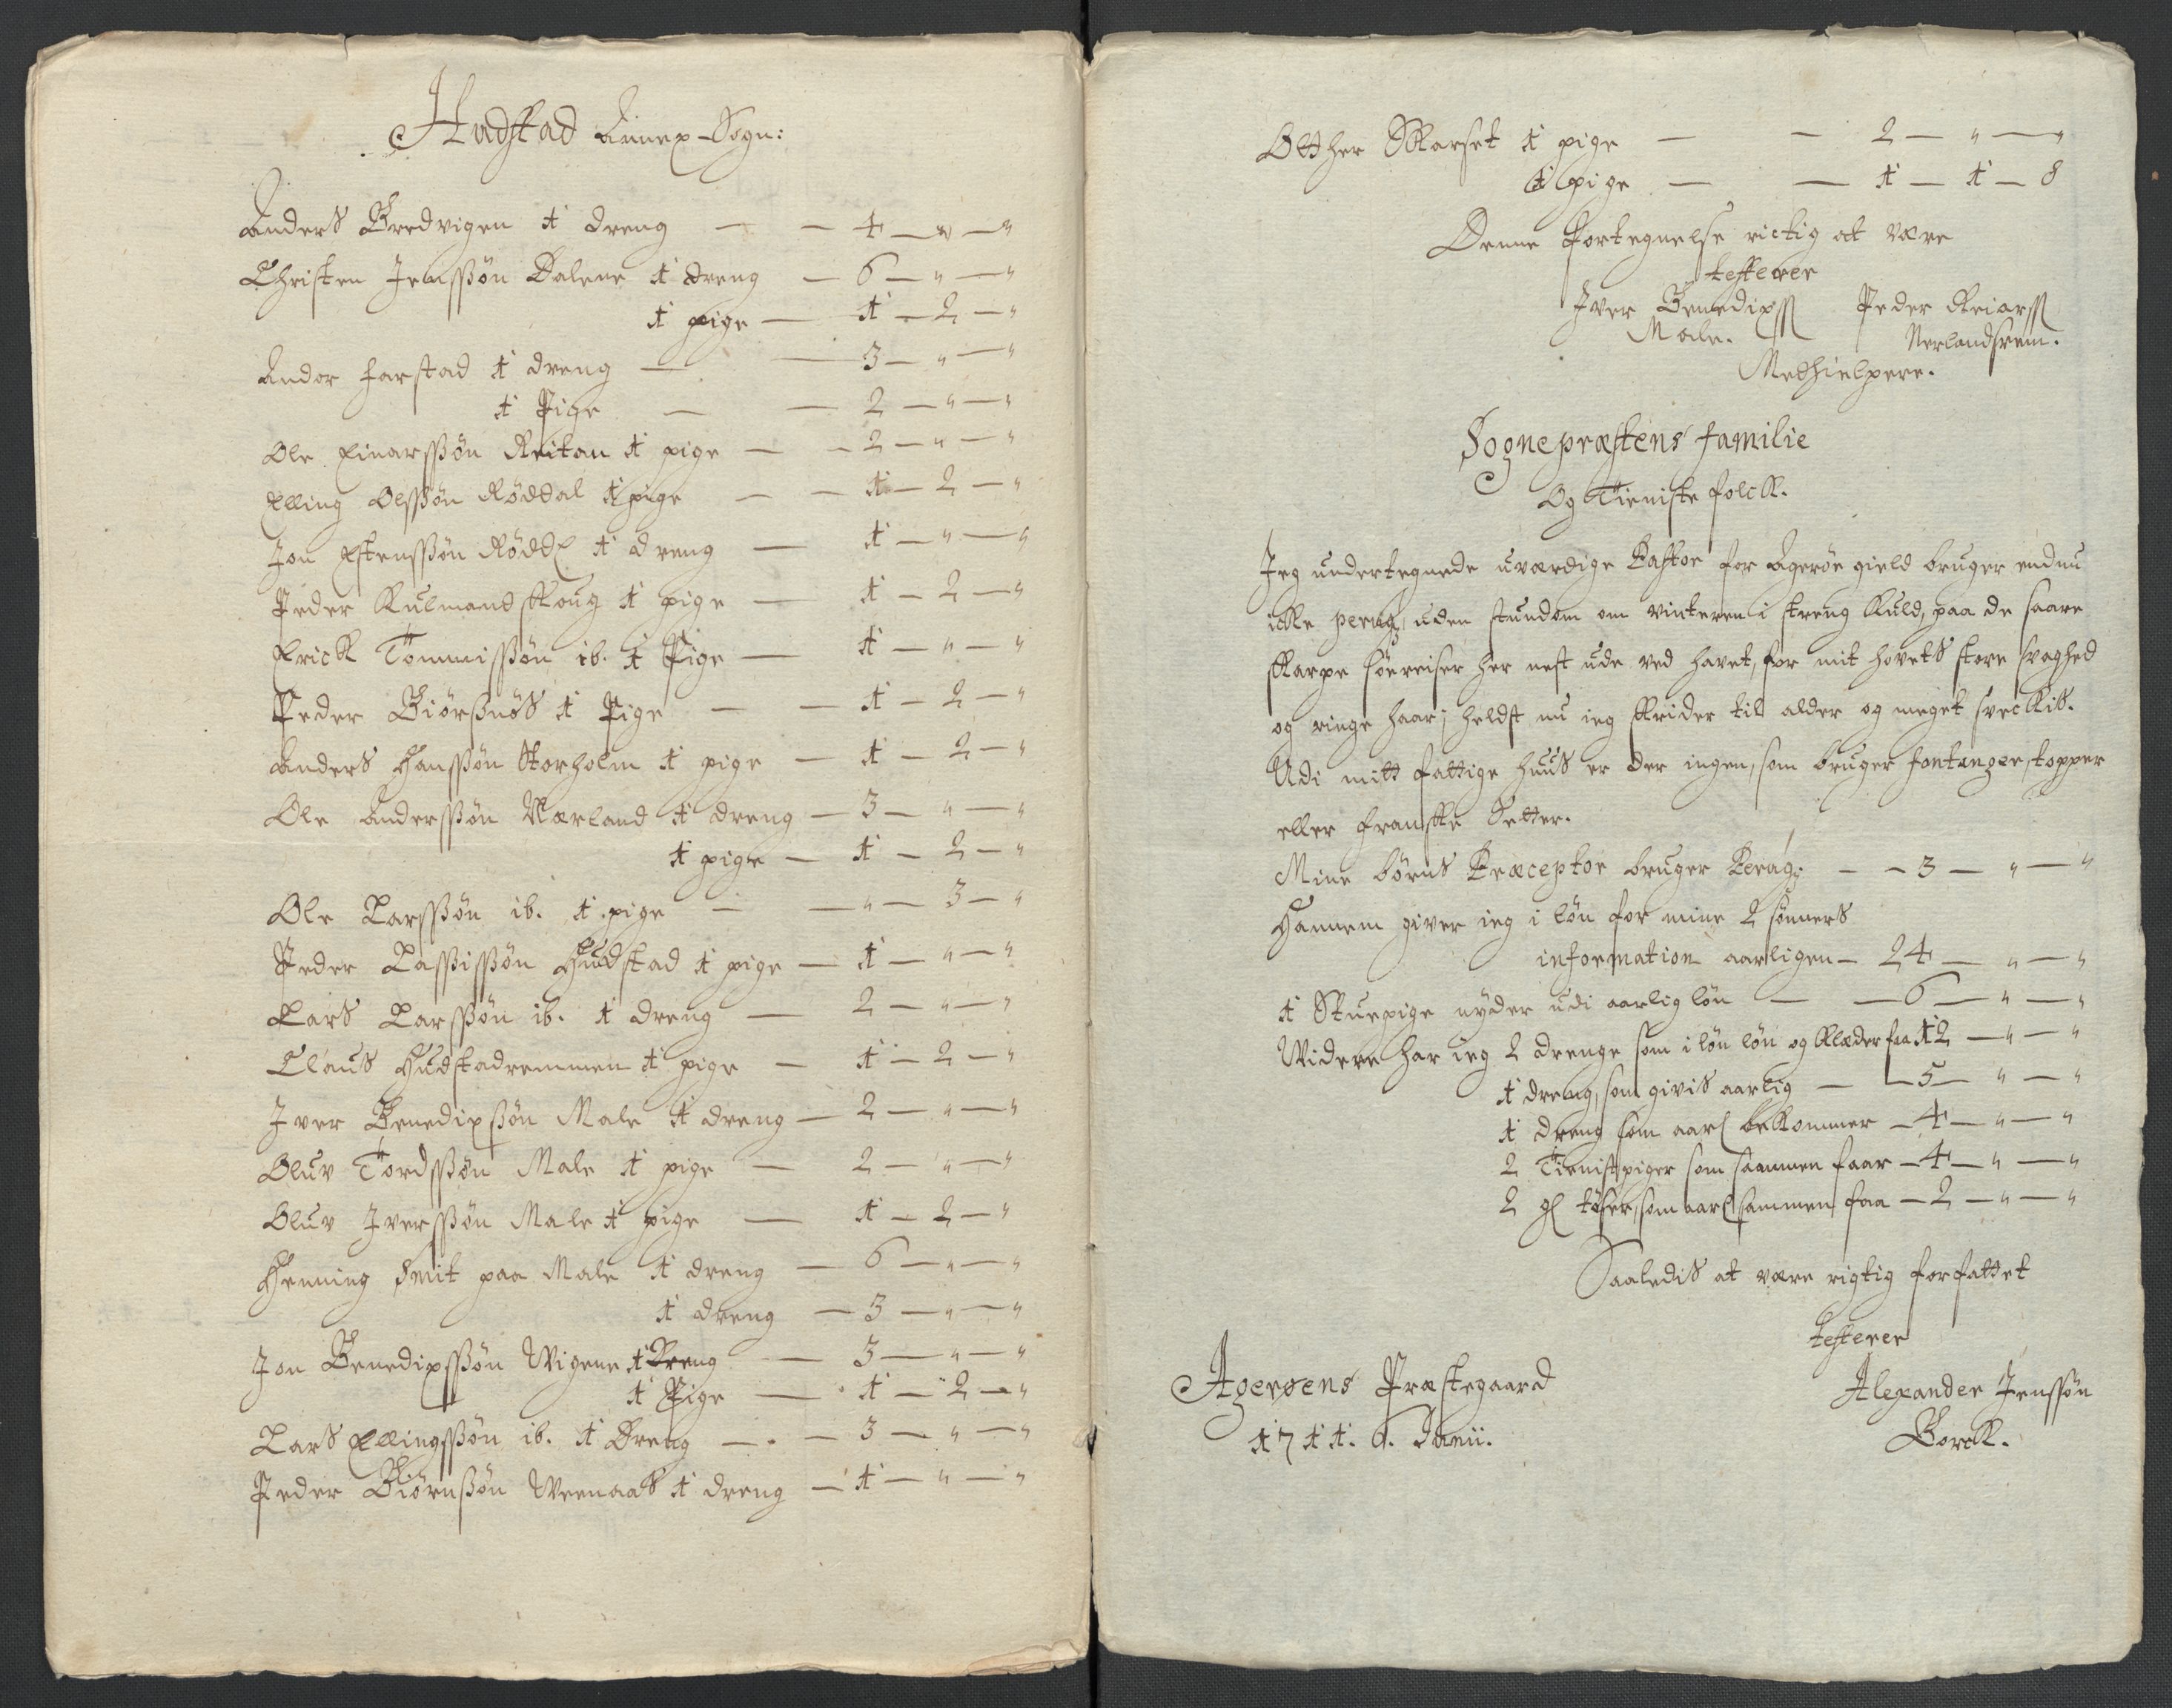 Hudstad Annex-Sogn:
Anders Bredvigen 1 dreng — — 4 — " — "
Christen Jenssøn Dalene 1 dreng — 6 — " — "
1 pige — 1 — 2 — "
Andor Farstad 1 dreng — — 3 — " — "
1 Pige — — 2 — " — "
Ole Einarssøn Reitan 1 pige — — 2 — " — "
Elling Olssøn Røddal 1 pige — — 1 — 2 — "
Jon Estenssøn Rødd 1 dreng — 1 — " — "
Peder Kulmandskoug 1 pige — 1 — 2 — "
Erick Tommissøn ib. 1 Pige — 1 — " — "
Peder Biørsnøs 1 Pige — — 1 — 2 — "
Anders Hanssøn Storholm 1 pige — 1 — 2 — "
Ole Anderssøn Nærland 1 dreng — 3 — " — "
1 pige — 1 — 2 — "
Ole Larssøn ib. 1 pige — — " — 3 — "
Peder Lassissøn Hudstad 1 pige — 1 — " — "
Lars Larssøn ib. 1 dreng — 2 — " — "
Claus Hudstadremmen 1 pige — 1 — 2 — "
Iver Benedixsøn Male 1 dreng — 2 — " — "
Oluv Tordssøn Male 1 pige — 2 — " — "
Oluv Iverssøn Male 1 pige — 1 — 2 — "
Henning Smit paa Male 1 dreng — 6 — " — "
1 dreng — 3 — " — "
Jon Benedixssøn Wigene 1 Dreng — 3 — " — "
1 Pige — 1 — 2 — "
Lars Ellingssøn ib. 1 Dreng — — 3 — " — "
Peder Biørnsøn Weenaas 1 dreng — 1 — " — "
Otther Skarset 1 pige — — 2 — " — "
1 pige — — 1 — 1 — 8
Denne Fortegnelse rictig at være
testerer
Iver Benedixss Peder Reiarss
Male. Nerlandsrem.
Medhielpere.
Sognepræstens familie
Og Tieniste folck.
Jeg undertegnede uværdige Pastor for Agerøe gield bruger endnu
icke peruq; uden stundom om vinteren i streng kuld, paa de saare
skarpe søereiser her nest ude ved havet, for mit hovets store svaghed
og ringe haar; heldst nu ieg skrider til alder og meget sveckis.
Udi mitt fattige huus er der ingen, som bruger fontanger, topper
eller franske Setter.
Mine børns Præceptor bruger Peruq; — — 3 — " — "
Hannem giver ieg i løn for mine 2 sønners
information aarligen — 24 — " — "
1 Stuepige nyder udi aarlig løn — — 6 — " — "
Widere har ieg 2 drenge som i løn løn og klæder faa 12 — " — "
1 dreng, som givis aarlig — — 5 — " — "
1 dreng som aarl bekommer — 4 — " — "
2 Tienistpiger som sammen faar — 4 — " — "
2 gl tøser, som aarl sammen faa — 2 — " — "
Saaledis at være rigtig forfattet
testerer
Agerøens Præstegaard Alexander Jenssøn
1711. 6. Junii. Borck.